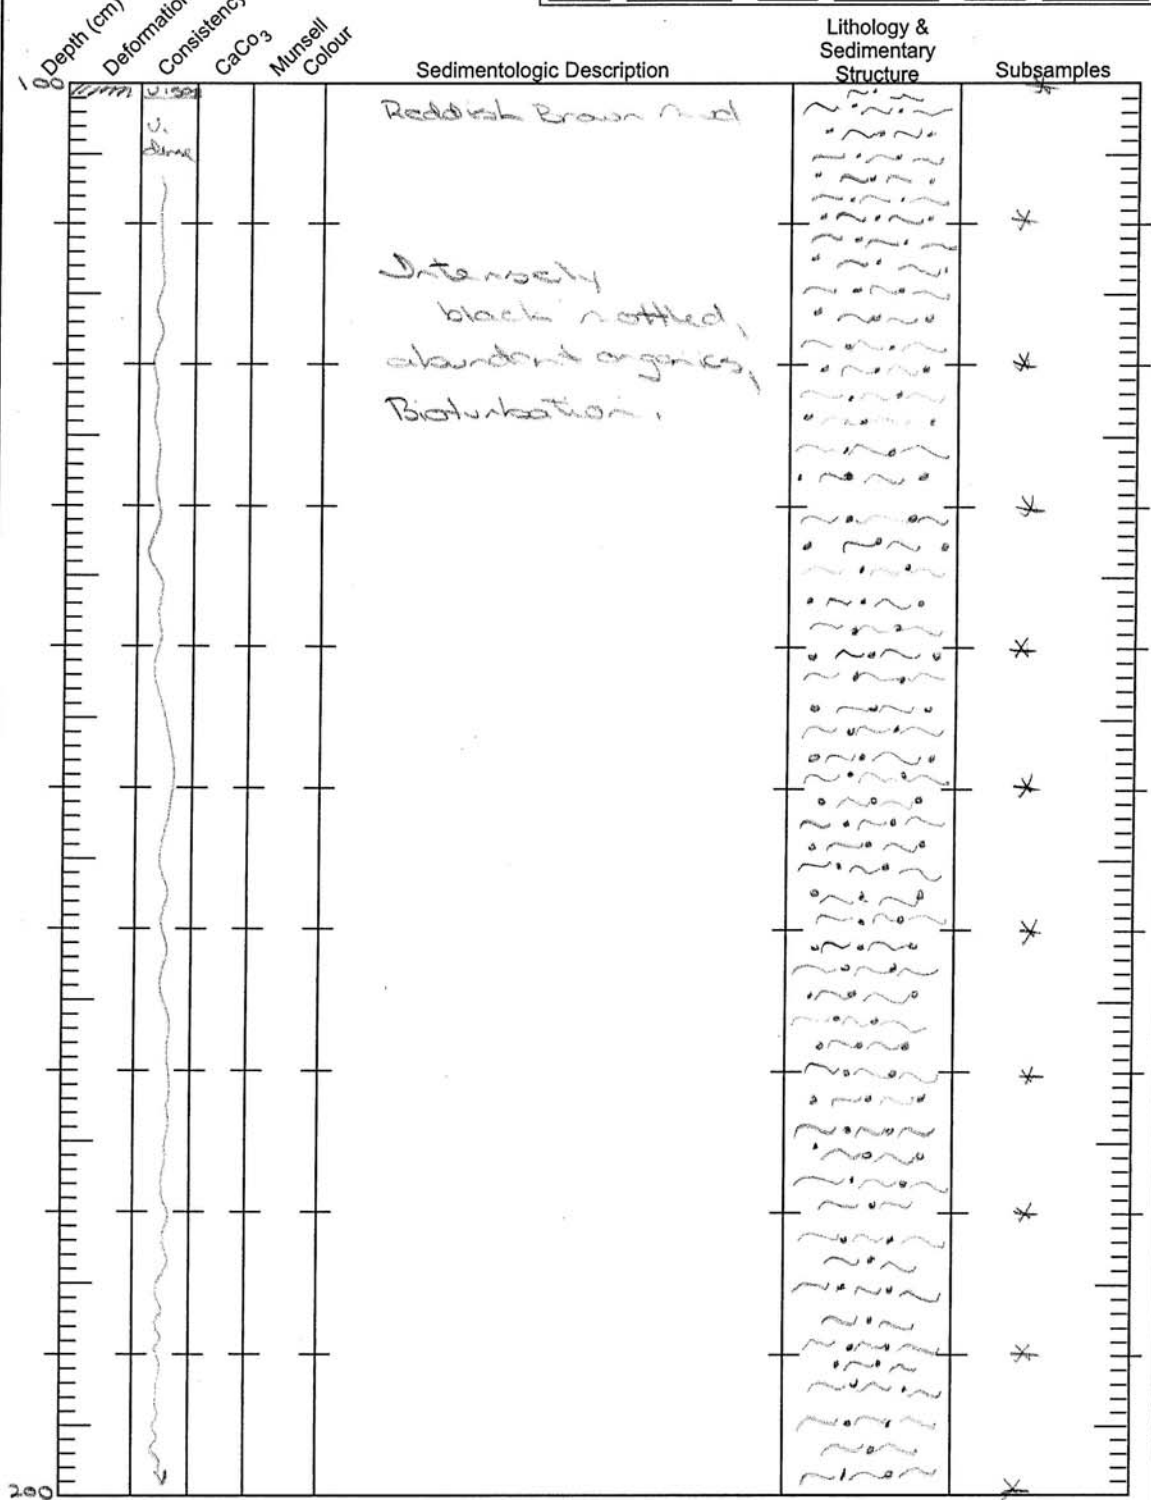 Depth (cm)
Deformation
Consistency
CaCo3
Munsell
Colour
Sedimentologic Description
Lithology &
Sedimentary
Structure
Subsamples
100
V.
dense
Reddish Brown mud
Intensely
black mottled,
abundant organics,
Bioturbation.
200